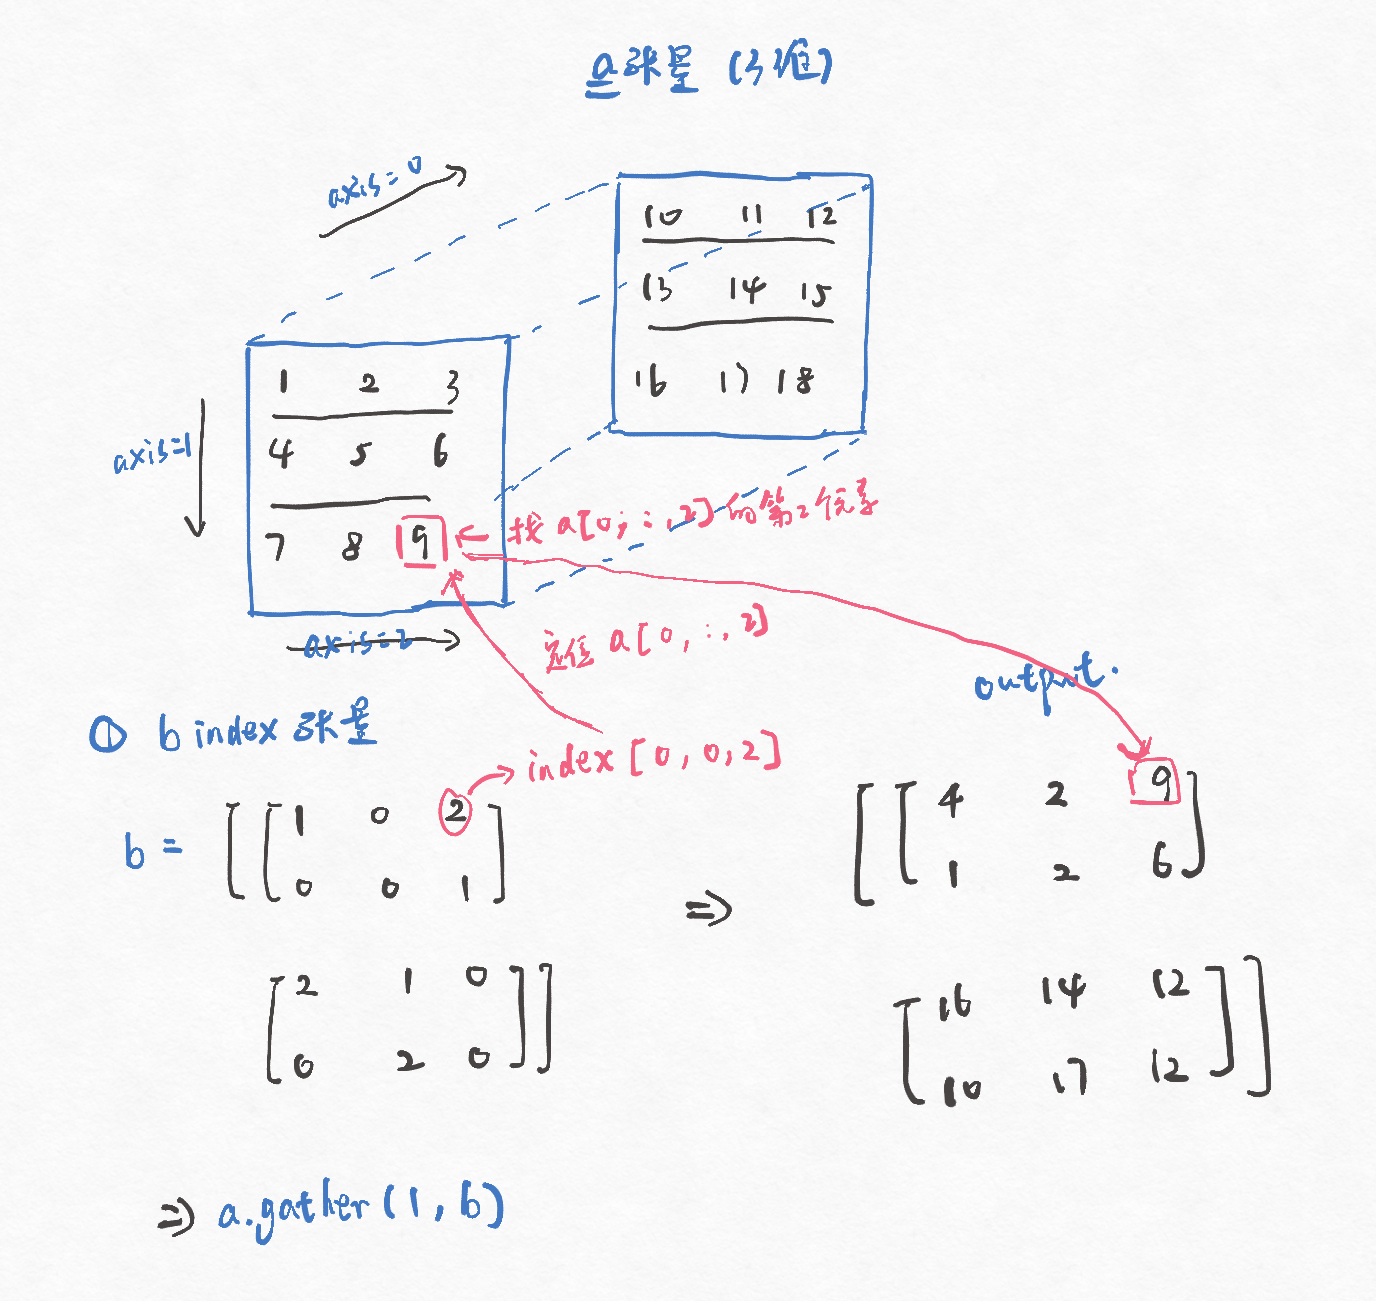 a张量 (3维)
axis=0
10 11 12
13 14 15
16 17 18
1 2 3
4 5 6
7 8 9
axis=1
axis=2
← 找 a[0, :, 2] 的第2个元素
定位 a[0, :, 2]
output.
① b index 张量
index [0, 0, 2]
b = [[1 0 2
0 0 1]
[2 1 0
0 2 0]]
⇒
[[4 2 9
1 2 6]
[16 14 12
10 17 12]]
⇒ a.gather(1, b)